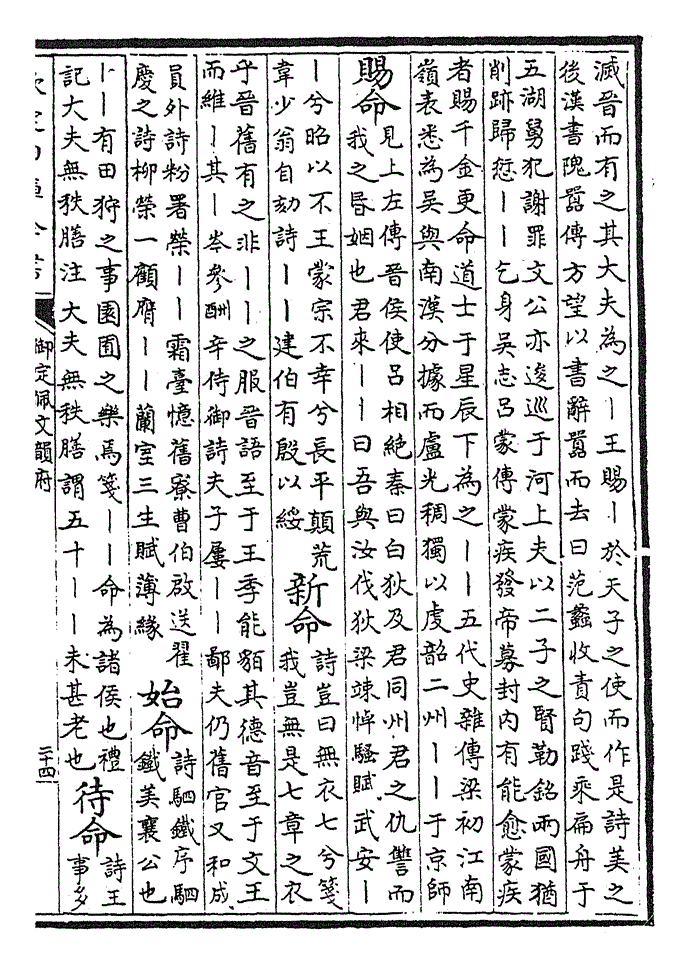 滅晉而有之其大夫為之丨王賜丨於天子之使而作是詩美之
後漢書隗囂傳方望以書辭囂而去曰范蠡收責句踐乘扁舟于
五湖舅犯謝罪文公亦逡巡于河上夫以二子之賢勒銘兩國猶
削跡歸愆丨丨乞身吳志呂蒙傳蒙疾發帝募封内有能愈蒙疾
者賜千金更命道士于星辰下為之丨丨五代史雜傳梁初江南
嶺表悉為吳與南漢分據而盧光稠獨以虔韶二州丨丨于京師
賜命
見上左傳晉侯使呂相絶秦曰白狄及君同州君之仇讐而
我之昏姻也君來丨丨曰吾與汝伐狄梁竦悼騷賦武安丨
丨兮昭以不王蒙宗不幸兮長平顛荒
韋少翁自劾詩丨丨建伯有殷以綏
新命
詩豈曰無衣七兮箋
我豈無是七章之衣
乎晉舊有之非丨丨之服晉語至于王季能貊其德音至于文王
而維丨其丨岑參酬辛侍御詩夫子屢丨丨鄙夫仍舊官又和成
員外詩粉署榮丨丨霜臺憶舊寮曹伯啟送翟
慶之詩柳榮一顧膺丨丨蘭室三生賦薄緣
始命
詩駟鐵序駟
鐵美襄公也
丨丨有田狩之事園囿之樂焉箋丨丨命為諸侯也禮
記大夫無秩膳注大夫無秩膳謂五十丨丨未甚老也
待命
詩王
事多
欽定四庫全書
御定佩文韻府
二十四